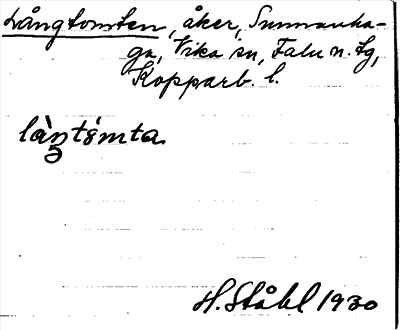 Långtomten, åker, Sunnanha-
ga, Vika sn, Falu n. tg,
Kopparb. l.
làŋtómta
H. Ståhl 1930